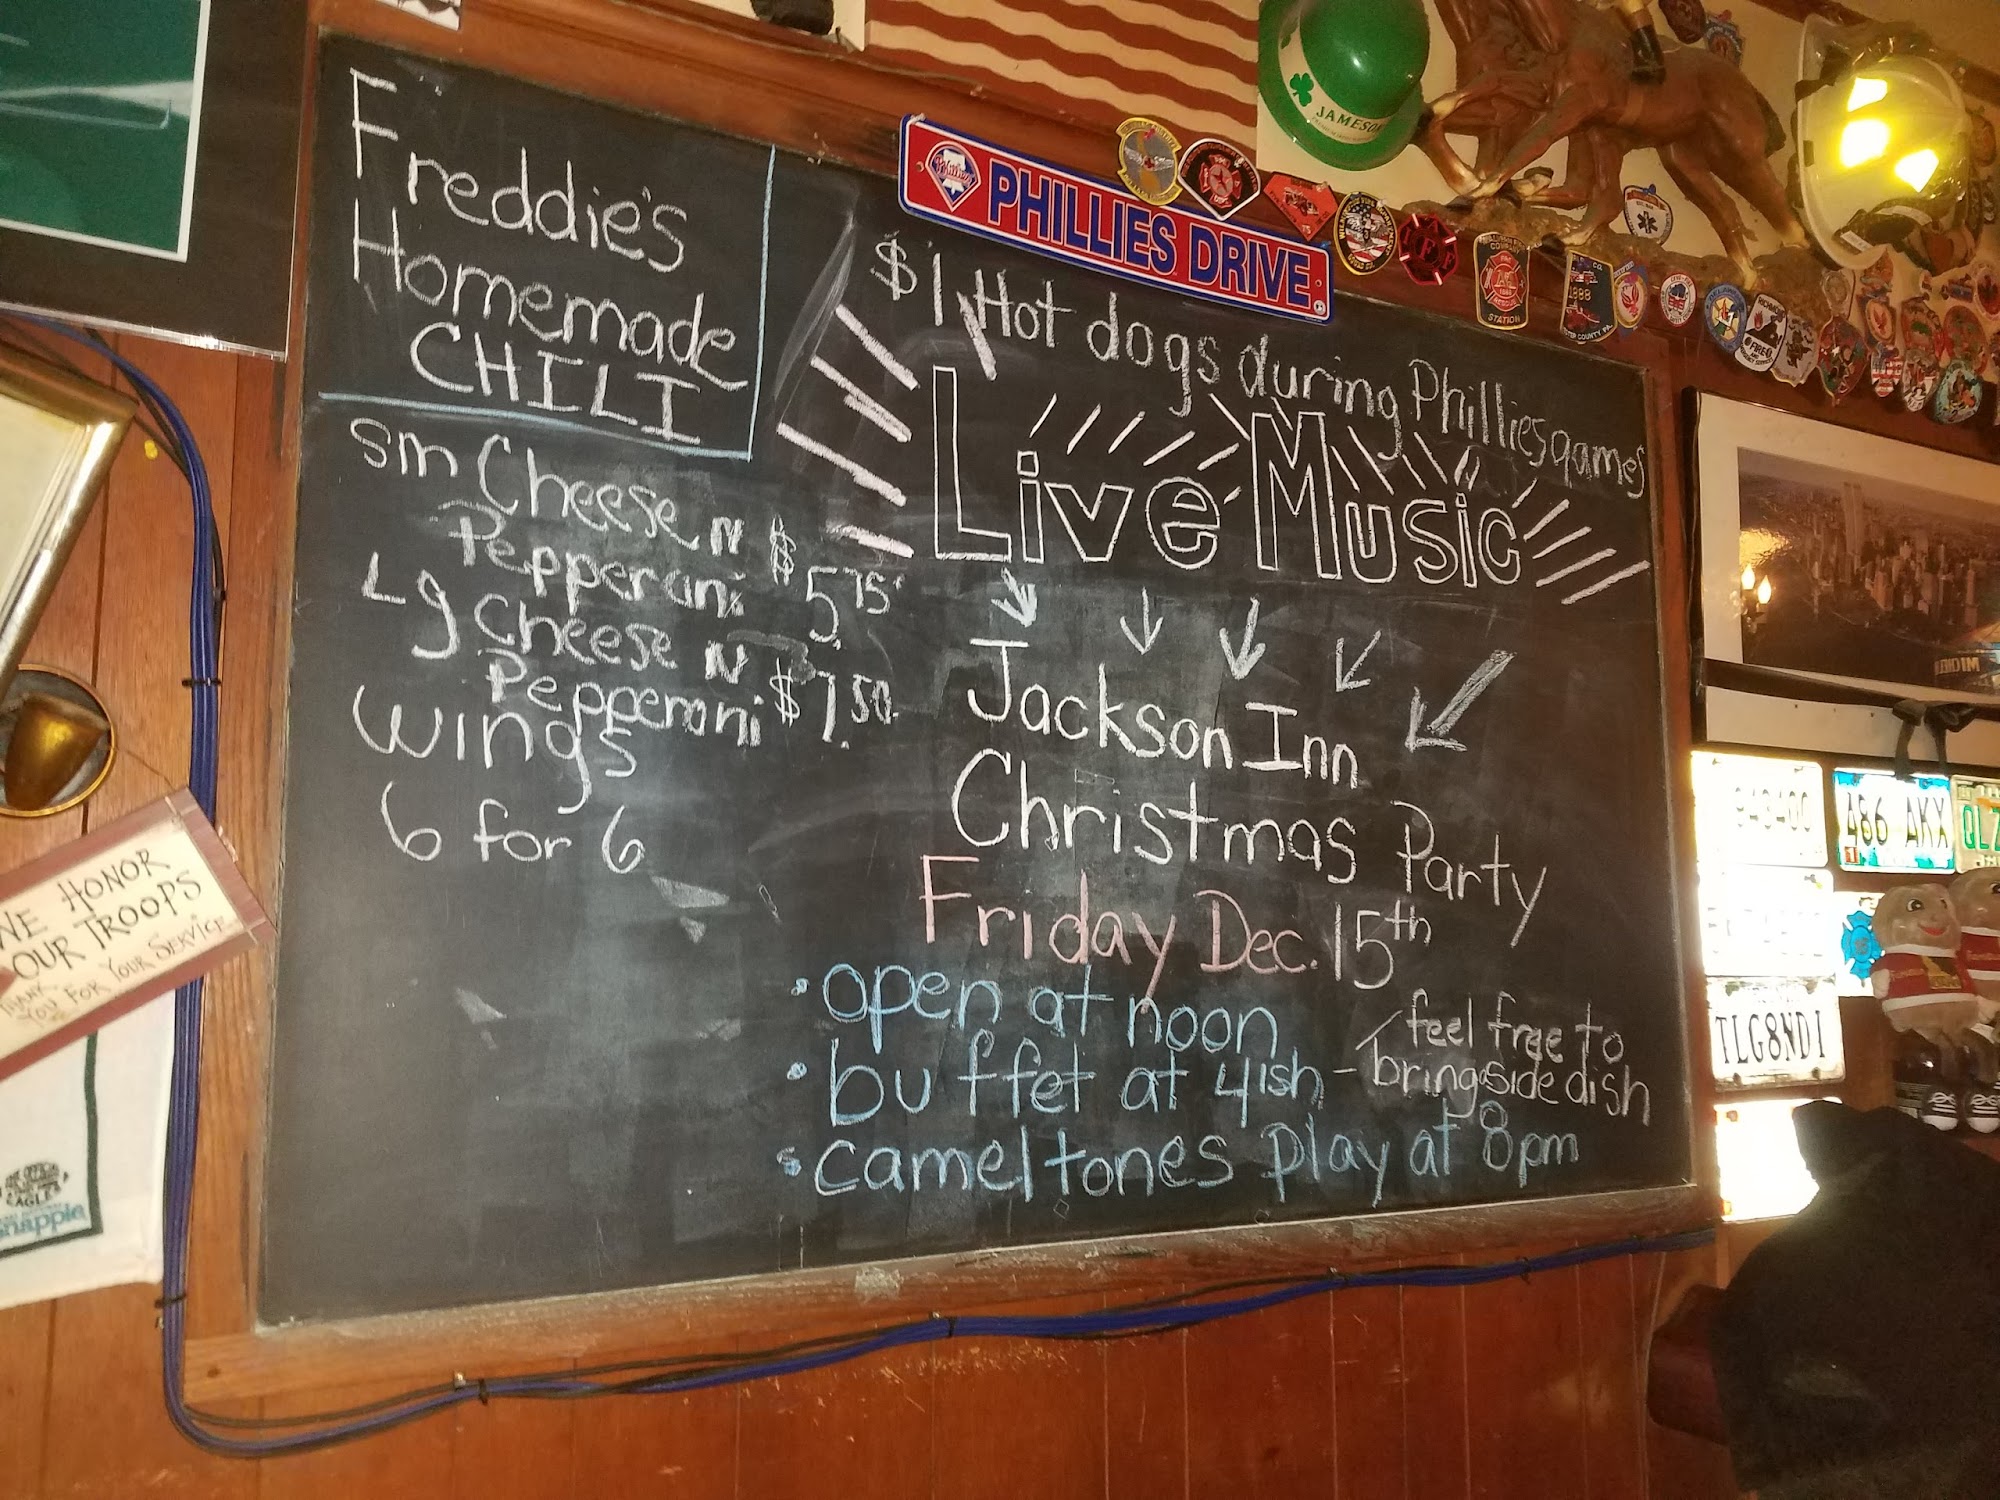 Freddie's
Homemade
CHILI
sm Cheese N
Pepperoni $5.75
Lg Cheese N
Pepperoni $7.50
wings
6 for 6
PHILLIES DRIVE
Phillies
$1 Hot dogs during Phillies games
Live Music
Jackson Inn
Christmas Party
Friday Dec. 15th
• open at noon
• buffet at 4ish - feel free to
bring a side dish
• cameltones play at 8pm
JAMESON
WE HONOR
OUR TROOPS
THANK
YOU FOR YOUR SERVICE
EAGLES
Snapple
STATION
1888
486 AKX
QLZ
TLG8NDI